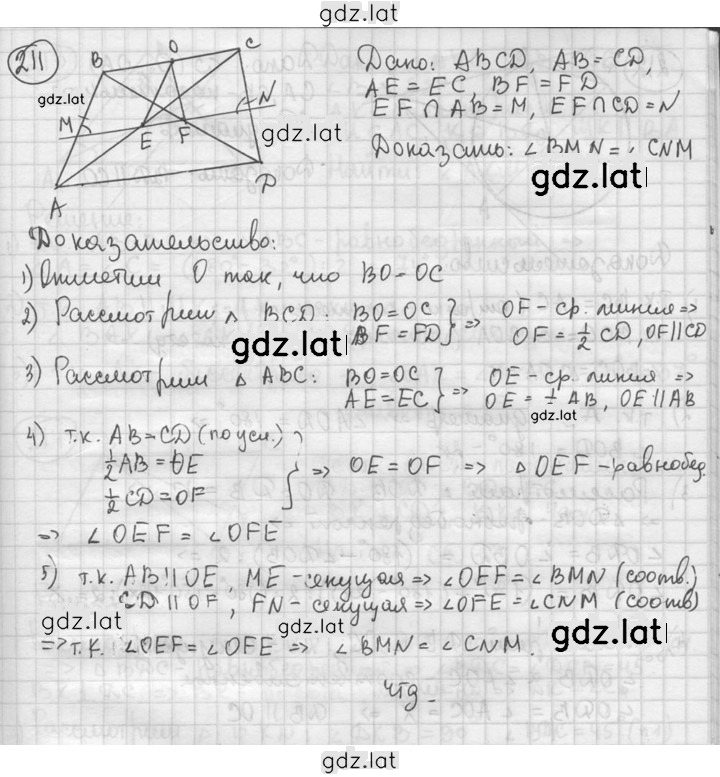 gdz.lat
211
B O C
gdz.lat
M N
E F
gdz.lat
A D
Дано: ABCD, AB=CD,
AE=EC, BF=FD
EF∩AB=M, EF∩CD=N
Доказать: ∠BMN=∠CNM
gdz.lat
Доказательство:
1) Отметим O так, что BO=OC
2) Рассмотрим △ BCD: BO=OC
BF=FD } => OF-ср. линия =>
OF=½CD, OF||CD
gdz.lat
3) Рассмотрим △ ABC: BO=OC
AE=EC } => OE-ср. линия =>
OE=½AB, OE||AB
gdz.lat
4) т.к. AB=CD (по усл.)
½AB=OE
½CD=OF } => OE=OF => △OEF-равнобед.
=> ∠OEF=∠OFE
5) т.к. AB||OE, ME-секущая => ∠OEF=∠BMN (соотв.)
CD||OF, FN-секущая => ∠OFE=∠CNM (соотв)
gdz.lat gdz.lat gdz.lat
=> т.к. ∠OEF=∠OFE => ∠BMN=∠CNM.
чтд.
gdz.lat